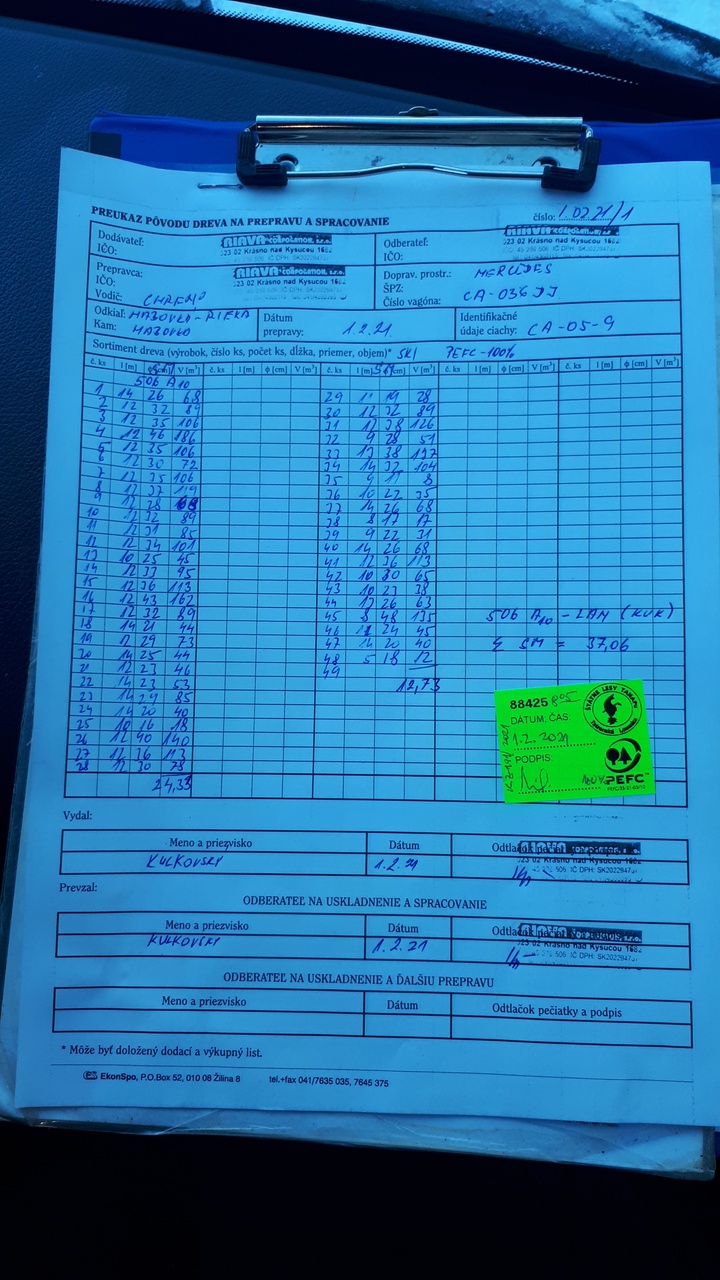 PREUKAZ PÔVODU DREVA NA PREPRAVU A SPRACOVANIE
číslo: 1.02.21/1
Dodávateľ:
IČO:
023 02 Krásno nad Kysucou 1682
Odberateľ:
IČO:
023 02 Krásno nad Kysucou 1682
Prepravca:
IČO:
Vodič:
023 02 Krásno nad Kysucou 1682
Doprav. prostr.: MERCEDES
ŠPZ:
Číslo vagóna: CA-036DJ
Odkiaľ:
Kam:
Dátum
prepravy: 1.2.21
Identifikačné
údaje ciachy: CA-05-9
Sortiment dreva (výrobok, číslo ks, počet ks, dĺžka, priemer, objem)* SKI PEFC-100%
č. ks l [m] ϕ [cm] V [m³] č. ks l [m] ϕ [cm] V [m³] č. ks l [m] ϕ [cm] V [m³] č. ks l [m] ϕ [cm] V [m³] č. ks l [m] ϕ [cm] V [m³]
506 A10
1 14 26 68
2 12 32 89
3 12 35 106
4 12 46 186
5 12 35 106
6 12 30 72
7 12 35 106
8 12 37 119
9 12 28 68
10 12 32 89
11 12 31 85
12 12 34 101
13 10 25 45
14 12 33 95
15 12 36 113
16 12 43 162
17 12 32 89
18 14 21 44
19 12 29 73
20 14 25 44
21 12 23 46
22 14 23 53
23 14 29 85
24 14 20 40
25 10 16 18
26 12 40 140
27 12 36 113
28 12 30 78
24,33
29 11 19 28
30 12 32 89
31 12 38 126
32 9 28 51
33 12 38 127
34 14 32 104
35 9 11 8
36 10 22 35
37 14 26 68
38 8 17 17
39 9 22 31
40 14 26 68
41 12 36 113
42 10 30 65
43 10 23 38
44 12 26 63
45 8 48 135
46 11 24 45
47 14 20 40
48 5 18 12
49
12,73
506 A10 - LAN (KUK)
Σ SM = 37,06
88425 805
DÁTUM, ČAS:
1.2.2021
PODPIS:
ŠTÁTNE LESY TANAPU
Tatranská Lomnica
100% PEFC™
Vydal:
Meno a priezvisko Dátum Odtlačok pečiatky a podpis
KULKOVSKY 1.2.21
023 02 Krásno nad Kysucou 1682
Prevzal:
ODBERATEĽ NA USKLADNENIE A SPRACOVANIE
Meno a priezvisko Dátum Odtlačok pečiatky a podpis
KULKOVSKY 1.2.21
023 02 Krásno nad Kysucou 1682
ODBERATEĽ NA USKLADNENIE A ĎALŠIU PREPRAVU
Meno a priezvisko Dátum Odtlačok pečiatky a podpis
* Môže byť doložený dodací a výkupný list.
EkonSpo, P.O.Box 52, 010 08 Žilina 8 tel.+fax 041/7635 035, 7645 375